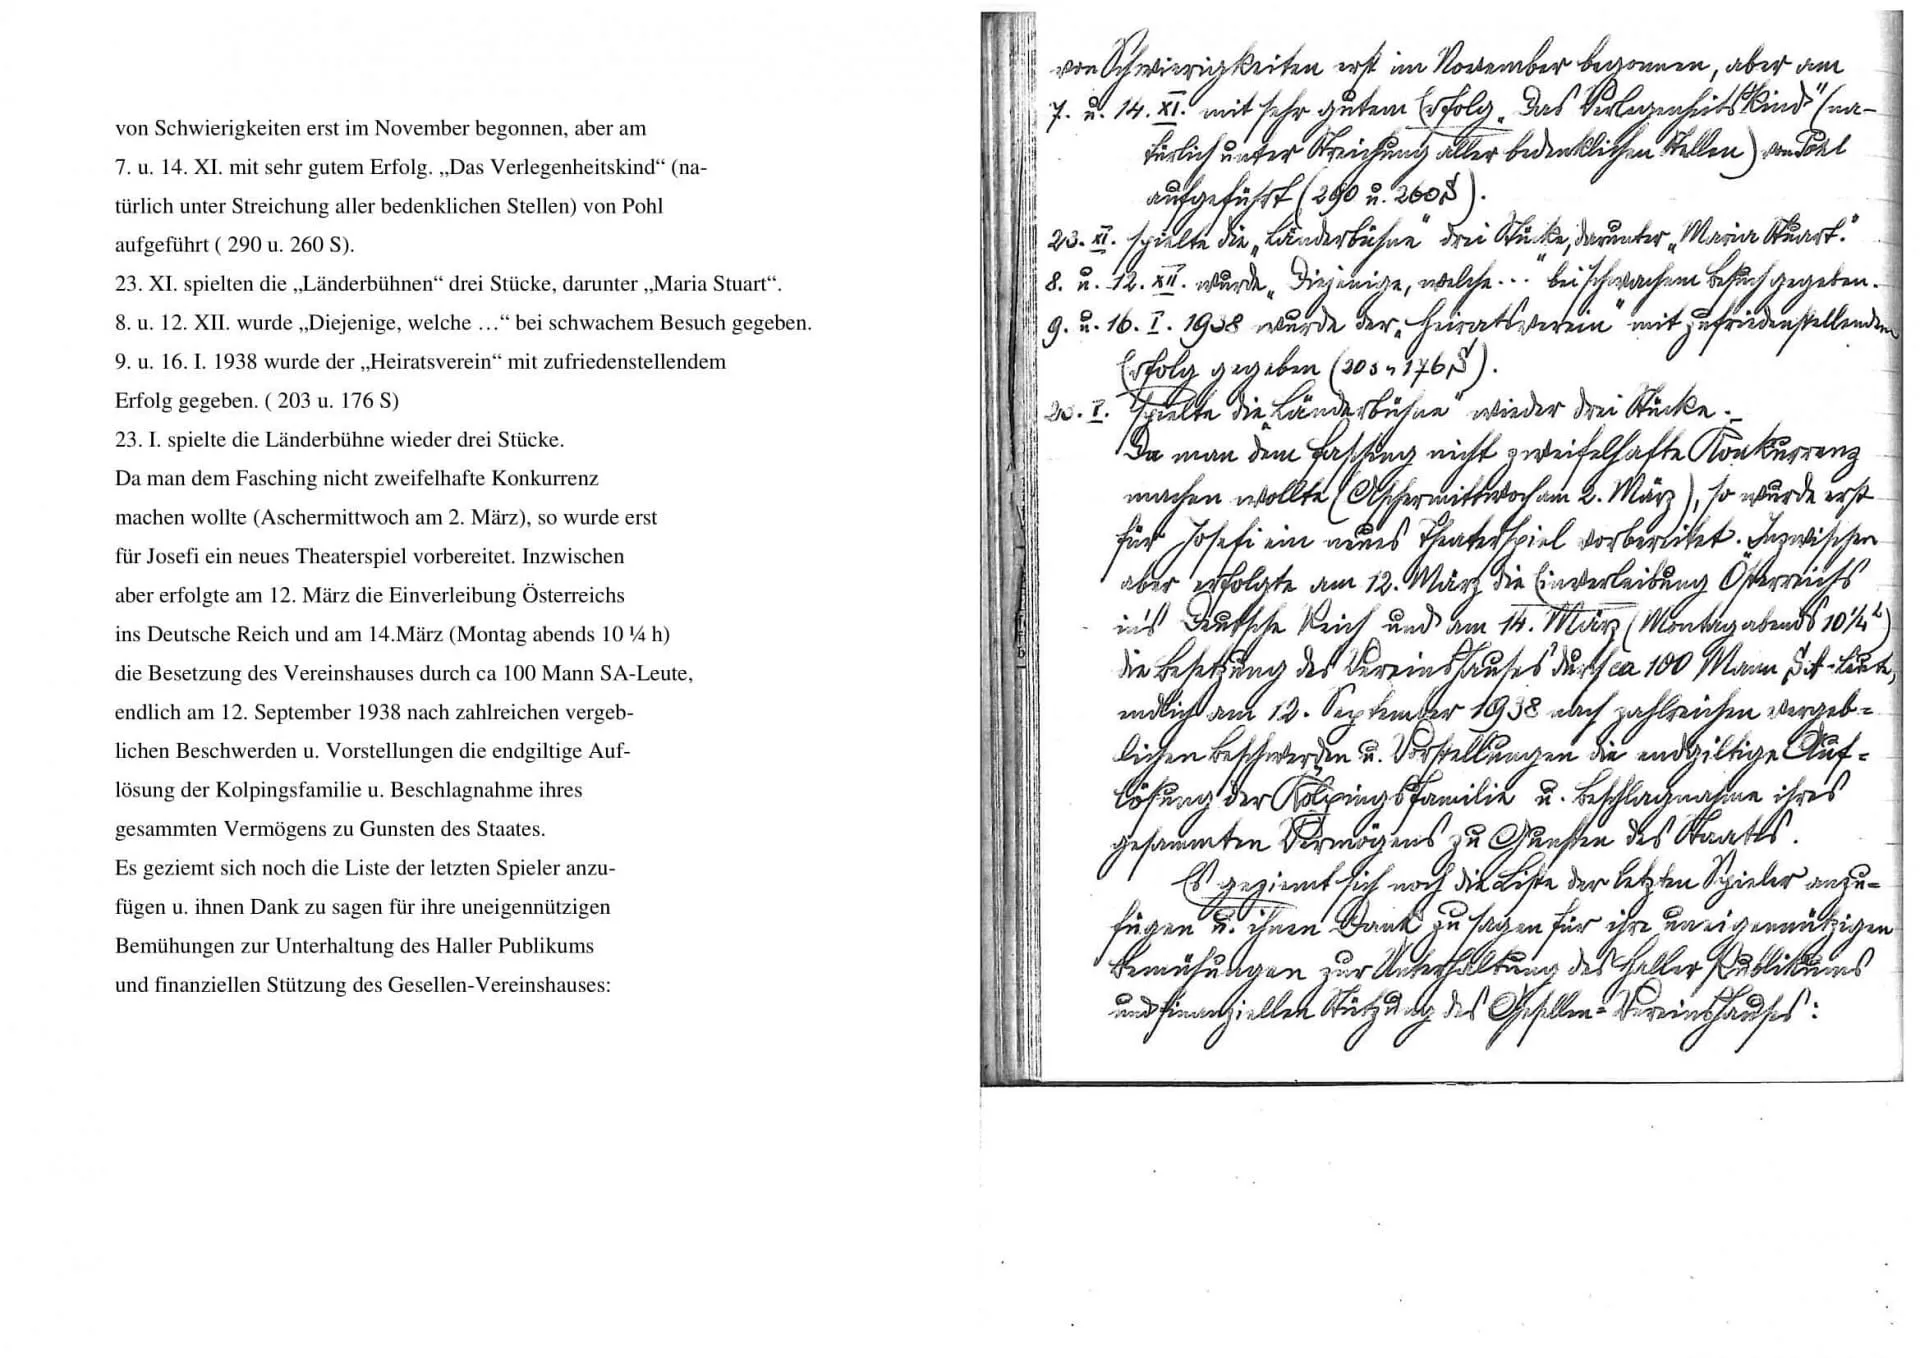 von Schwierigkeiten erst im November begonnen, aber am
7. u. 14. XI. mit sehr gutem Erfolg. „Das Verlegenheitskind“ (na-
türlich unter Streichung aller bedenklichen Stellen) von Pohl
aufgeführt ( 290 u. 260 S).
23. XI. spielten die „Länderbühnen“ drei Stücke, darunter „Maria Stuart“.
8. u. 12. XII. wurde „Diejenige, welche …“ bei schwachem Besuch gegeben.
9. u. 16. I. 1938 wurde der „Heiratsverein“ mit zufriedenstellendem
Erfolg gegeben. ( 203 u. 176 S)
23. I. spielte die Länderbühne wieder drei Stücke.
Da man dem Fasching nicht zweifelhafte Konkurrenz
machen wollte (Aschermittwoch am 2. März), so wurde erst
für Josefi ein neues Theaterspiel vorbereitet. Inzwischen
aber erfolgte am 12. März die Einverleibung Österreichs
ins Deutsche Reich und am 14.März (Montag abends 10 ¼ h)
die Besetzung des Vereinshauses durch ca 100 Mann SA-Leute,
endlich am 12. September 1938 nach zahlreichen vergeb-
lichen Beschwerden u. Vorstellungen die endgiltige Auf-
lösung der Kolpingsfamilie u. Beschlagnahme ihres
gesammten Vermögens zu Gunsten des Staates.
Es geziemt sich noch die Liste der letzten Spieler anzu-
fügen u. ihnen Dank zu sagen für ihre uneigennützigen
Bemühungen zur Unterhaltung des Haller Publikums
und finanziellen Stützung des Gesellen-Vereinshauses:
von Schwierigkeiten erst im November begonnen, aber am
7. u. 14. XI. mit sehr gutem Erfolg „Das Verlegenheitskind“ (na-
türlich unter Streichung aller bedenklichen Stellen) von Pohl
aufgeführt (290 u. 260 S).
23. XI. spielte die „Länderbühne“ drei Stücke, darunter „Maria Stuart.“
8. u. 12. XII. wurde „Diejenige, welche...“ bei schwachem Besuch gegeben.
9. u. 16. I. 1938 wurde der „Heiratsverein“ mit zufriedenstellendem
Erfolg gegeben (203 u 176 S).
23. I. spielte die „Länderbühne“ wieder drei Stücke.
Da man dem Fasching nicht zweifelhafte Konkurrenz
machen wollte (Aschermittwoch am 2. März), so wurde erst
für Josefi ein neues Theaterspiel vorbereitet. Inzwischen
aber erfolgte am 12. März die Einverleibung Österreichs
in's Deutsche Reich und am 14. März (Montag abends 10¼ h)
die Besetzung des Vereinshauses durch ca 100 Mann S.A-Leute,
endlich am 12. September 1938 nach zahlreichen vergeb=
lichen Beschwerden u. Vorstellungen die endgiltige Auf=
lösung der Kolpingsfamilie u. Beschlagnahme ihres
gesammten Vermögens zu Gunsten des Staates.
Es geziemt sich noch die Liste der letzten Spieler anzu=
fügen u. ihnen Dank zu sagen für ihre uneigennützigen
Bemühungen zur Unterhaltung des Haller Publikums
und finanziellen Stützung des Gesellen=Vereinshauses: